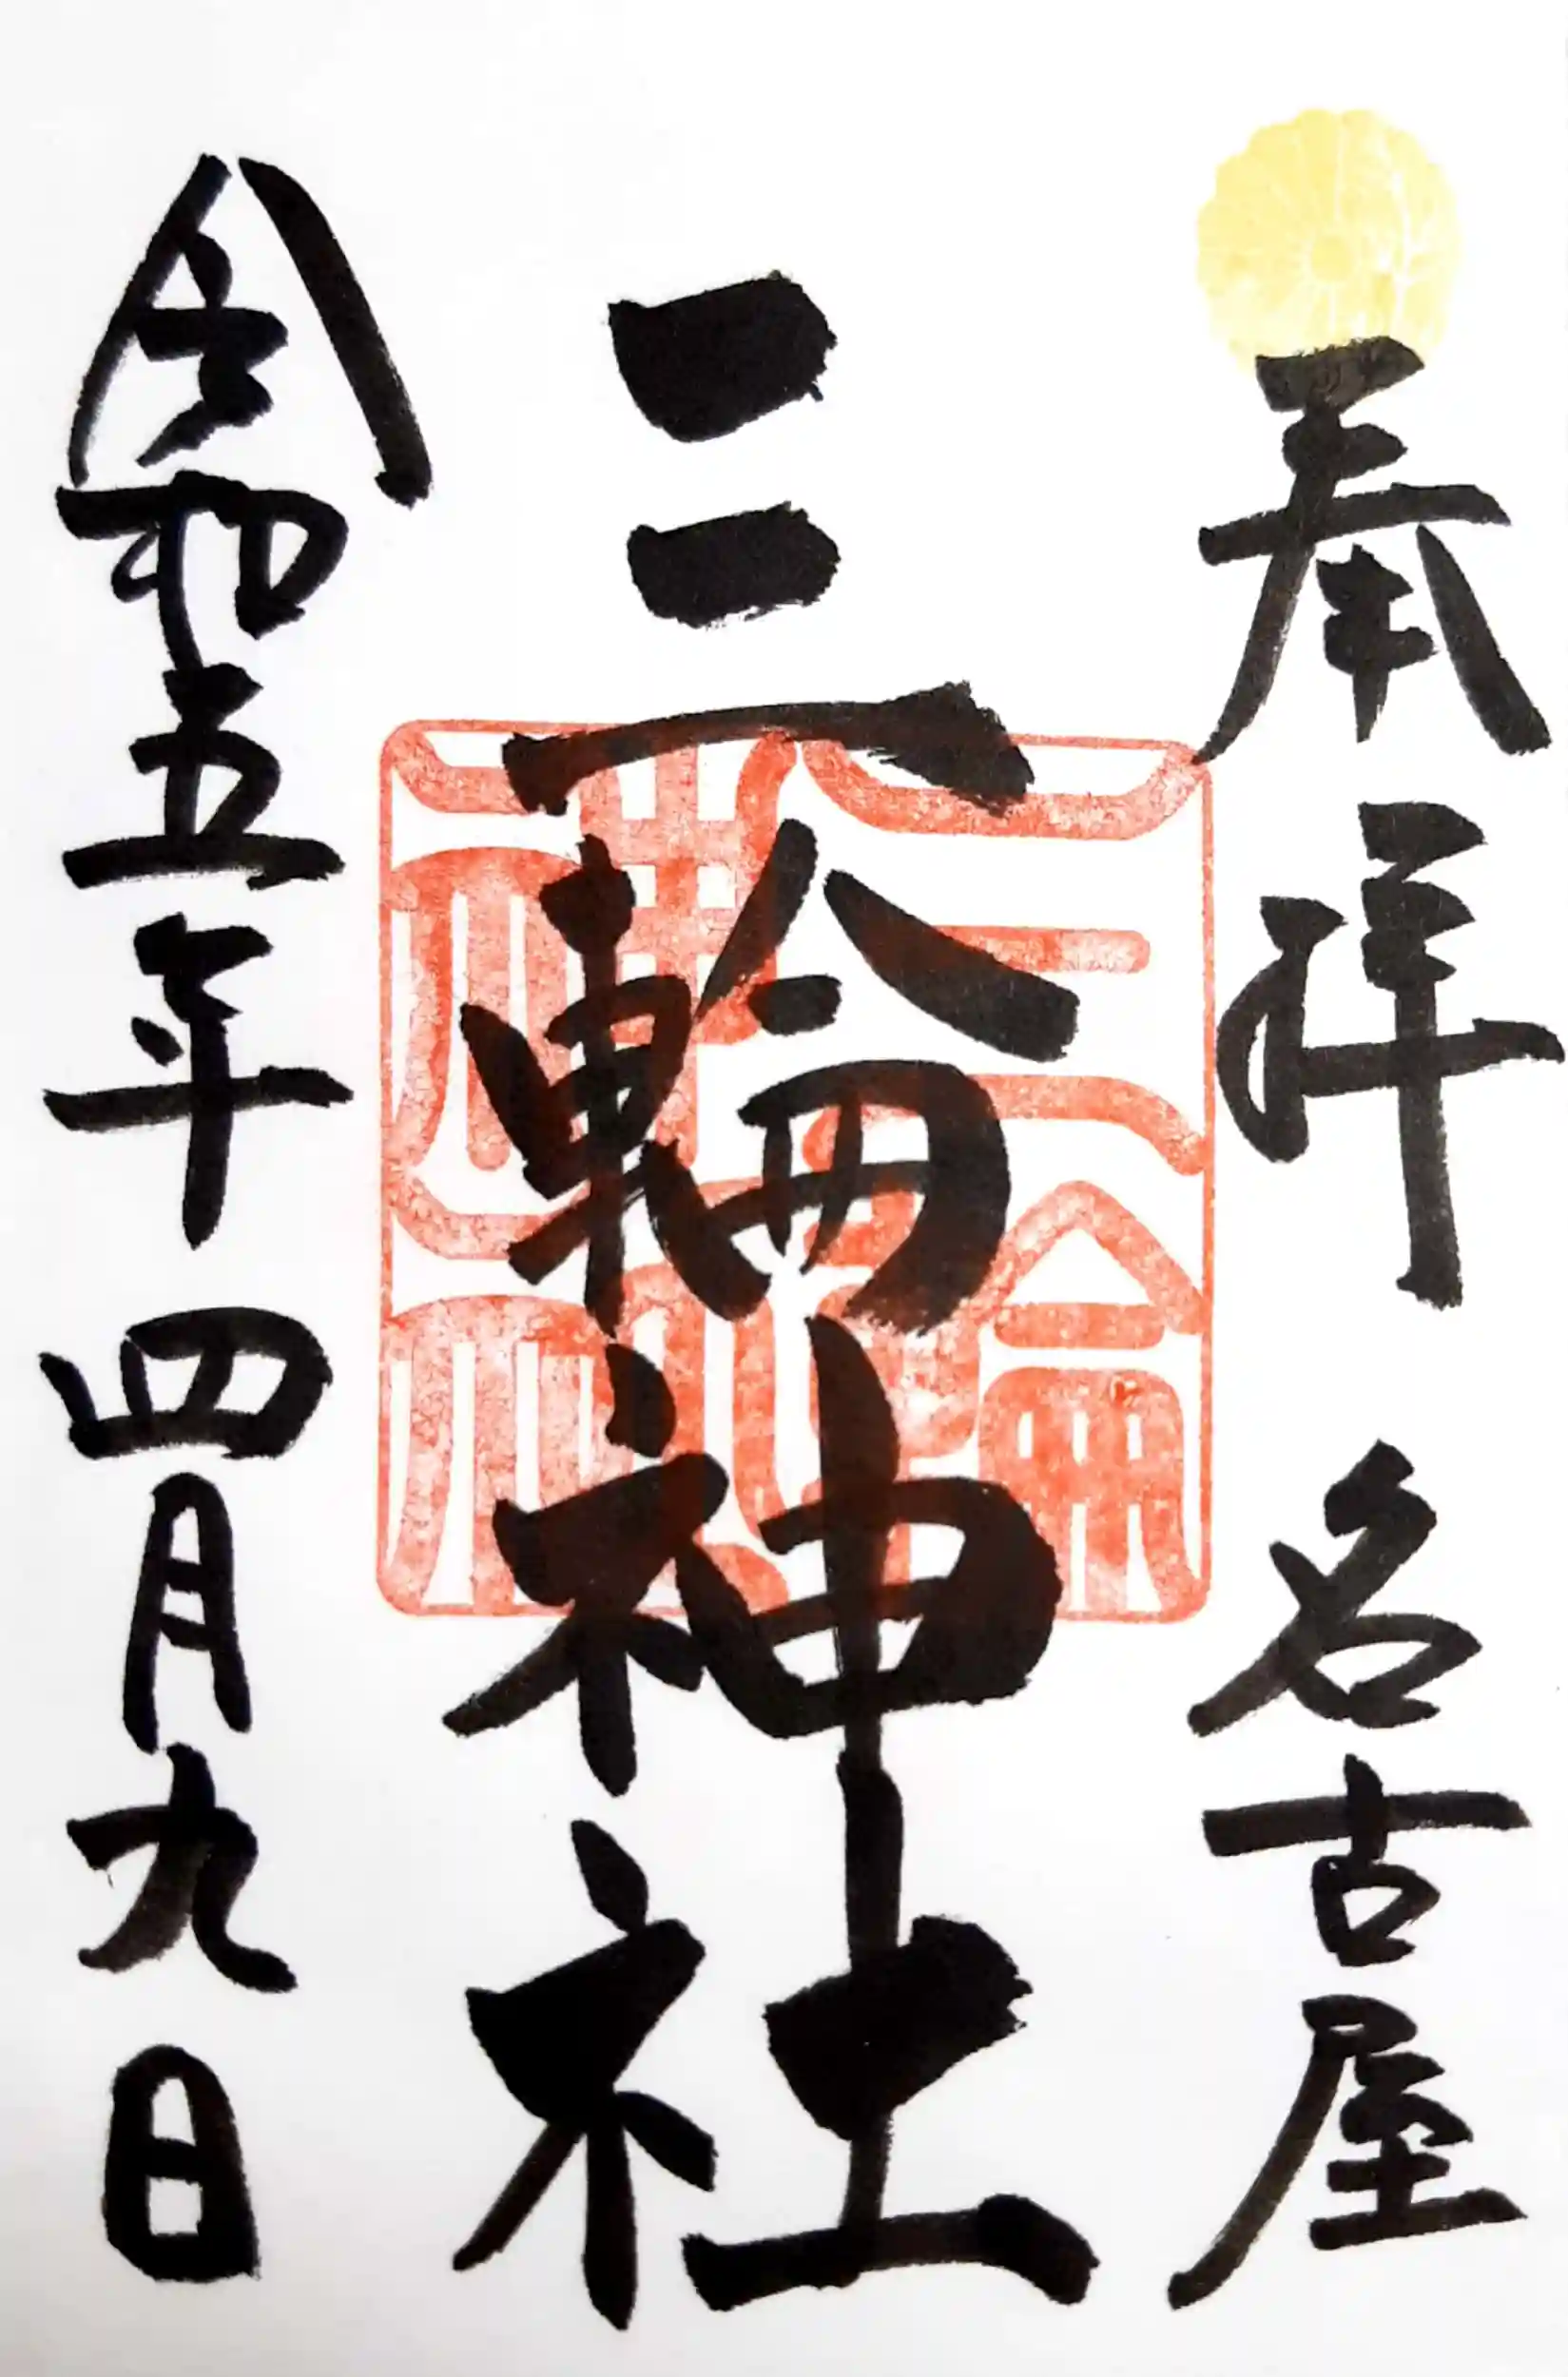 奉拝 名古屋
三輪神社
令和五年 四月九日
三輪神社